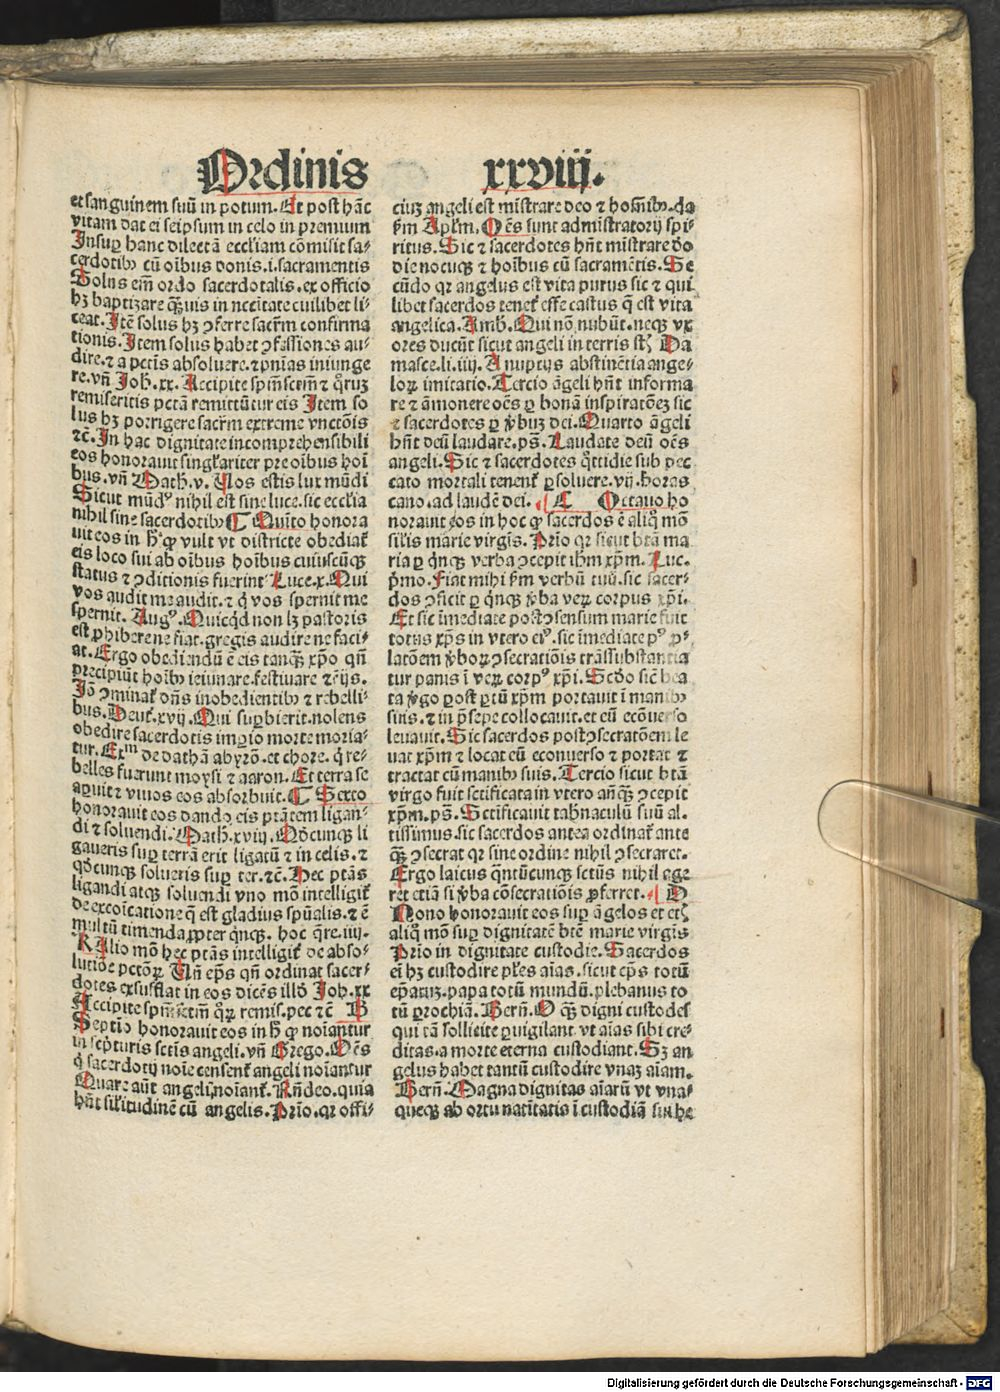 Ordinis xxviij.
et sanguinem suū in potum. Et post hāc
vitam dat ei seipsum in celo in premium
Insuꝑ hanc dilectā eccl'iam cōmisit sa⸗
cerdotibꝰ cū oībus donis. i. sacramentis
Solus em̄ ordo sacerdotalis. ex officio
hꝫ baptizare q̄ꝫuis in nccītate cuilibet li⸗
ceat. Itē solus hꝫ ꝯferre sacr̄m confirma
tionis. Item solus habet ꝯfessiones au⸗
dire. ⁊ a pctīs absoluere. ⁊ pn̄ias iniunge
re. vn̄ Joh̄. xx. Accipite sp̄m sctm̄ ⁊ q̊ꝝ
remiseritis pctā remittūtur eis Item so
lus hꝫ porrigere sacr̄m extreme vnctōis
⁊c̄. In hac dignitate incomprehensibili
eos honorauit singl'ariter pre oībus hoī
bus. vn̄ Math̄. v. Uos estis lux mūdi
Sicut mūdꝰ nihil est sine luce. sic eccl'ia
nihil sine sacerdotibꝰ ¶ Quīto honora
uit eos in h̊ ꝙ vult vt districte obediat̄
eis loco sui ab oībus hoībus cuiuscūqꝫ
status ⁊ ꝯditionis fuerint Luce. x. Qui
vos audit me audit. ⁊ q̇ vos spernit me
spernit. Augꝰ. Quicq̇d non lꝫ pastoris
est ꝓhibere ne fiat. gregis audire ne faci⸗
at. Ergo obediendū ē eis tanqꝫ̄ xp̄o qn̄
precipiūt hoībꝰ ieiunare. festiuare ⁊ c̄ijs.
Iō ꝯminat̄ dn̄s inobedientibꝰ ⁊ rebelli⸗
bus. Deut̄. xvij. Qui suꝑbierit. nolens
obedire sacerdotis imꝑio morte moria⸗
tur. Exᵐ de dathā abyrō. et chore. q̇ re⸗
belles fuerunt moysi ⁊ aaron. Et terra se
aꝑuit ⁊ viuos eos absorbuit. ¶ Sexto
honorauit eos dando eis ptātem ligan⸗
di ⁊ soluendi. Math̄. xviij. Qd̄cunqꝫ li
gaueris suꝑ terrā erit ligatū ⁊ in celis. ⁊
qd̄cunqꝫ solueris suꝑ ter. ⁊c̄. Hec ptās
ligandi atqꝫ soluendi vno mō intelligit̄
de excoīcatione q̄ est gladius sp̄ualis. ⁊ ē
multū timenda ꝓpter q̇nqꝫ. hoc q̄re. iiij.
R Alio mō hec ptās intelligit̄ de abso⸗
lutiōe pctōꝝ Un̄ ep̄s qn̄ ordinat sacer⸗
dotes exsufflat in eos dicēs illō Joh̄. xx
Accipite sp̄m sctm̄ q̊ꝝ remis. pec ⁊c̄ B
Septīo honorauit eos in h̊ ꝙ noīantur
in sc̄pturis sctīs angeli. vn̄ Grego. Oēs
q̇ sacerdotij noīe censent̄ angeli noīantur
Quare aūt angeli noīant̄. Rn̄deo. quia
hn̄t sil'itudinē cū angelis. Prīo. qr offi⸗
ciuꝫ angeli est mīstrare deo ⁊ hoīnibꝰ. da
ẜm Apl'm. Oēs sunt admīstratorij spi
ritus. Sic ⁊ sacerdotes hn̄t mīstrare deo
die nocuqꝫ ⁊ hoībus cū sacramētis. Se
cūdo qr angelus est vita purus sic ⁊ qui
libet sacerdos tenet̄ esse castus q̄ est vita
angelica. Amb̄. Qui nō nubūt. neqꝫ vx
ores ducūt sicut angeli in terris st̄ Da
masce. li. iiij. A nuptijs abstinētia ange⸗
loꝝ imitatio. Tercio āgeli hn̄t informa
re ⁊ āmonere oēs ꝑ bonā inspiratōeꝫ sic
⁊ sacerdotes ꝑ ꝟbuꝫ dei. Quarto āgeli
hn̄t deū laudare. ps̄. Laudate deū oēs
angeli. Sic ⁊ sacerdotes q̊ttidie sub pec
cato mortali tenent̄ ꝑsoluere. vij. horas
cano. ad laudē dei. ¶ C Octauo ho
norauit eos in hoc ꝙ sacerdos ē aliq̊ mō
sil'is marie virgīs. Prīo qr sicut btā ma
ria ꝑ q̇nqꝫ verba ꝯcepit ih̄m xp̄m. Luc.
pͥmo. Fiat mihi ẜm verbū tuū. sic sacer⸗
dos ꝯficit ꝑ q̇nqꝫ ꝟba veꝝ corpus xp̄i.
Et sic īmediate post ꝯsensum marie fuit
totus xp̄s in vtero eiꝰ. sic īmediate pꝰ ꝓ⸗
latōem ꝟboꝝ ꝯsecratiōis trāssubstantia
tur panis ī veꝝ corpꝰ xp̄i. Scdo sic̄ bea
ta ꝟgo post ꝑtū xp̄m portauit ī manibꝰ
suis. ⁊ in p̄sepe collocauit. et eū ecōuerso
leuauit. Sic sacerdos post ꝯsecratōem le
uat xp̄m ⁊ locat eū econuerso ⁊ portat ⁊
tractat cū manibꝰ suis. Tercio sicut btā
virgo fuit sctīficata in vtero an̄qꝫ̄ ꝯcepit
xp̄m. ps̄. Sctīficauit tab̄naculū suū al⸗
tissimus. sic sacerdos antea ordinat̄ ante
qꝫ̄ ꝯsecrat qr sine ordine nihil ꝯsecraret.
Ergo laicus q̄ntūcunqꝫ sctūs nihil age
ret etiā si ꝟba cōsecratiōis ꝓferret. ¶ D
Nono honorauit eos suꝑ āgelos et etꝫ
aliq̊ mō suꝑ dignitatē btē marie virgīs
Prīo in dignitate custodie. Sacerdos
ei hꝫ custodire pl'es aīas. sicut ep̄s totū
ep̄atuꝫ. papa totū mundū. plebanus to
tū ꝑrochiā. Bern̄. O qꝫ̄ digni custodes
qui tā sollicite ꝑuigilant vt aīas sibi cre⸗
ditas. a morte eterna custodiant. Sꝫ an
gelus habet tantū custodire vnaꝫ aīam.
Bern̄. Magna dignitas aīarū vt vna⸗
queqꝫ ab ortu natītatis ī custodiā sui he
Digitalisierung gefördert durch die Deutsche Forschungsgemeinschaft - DFG